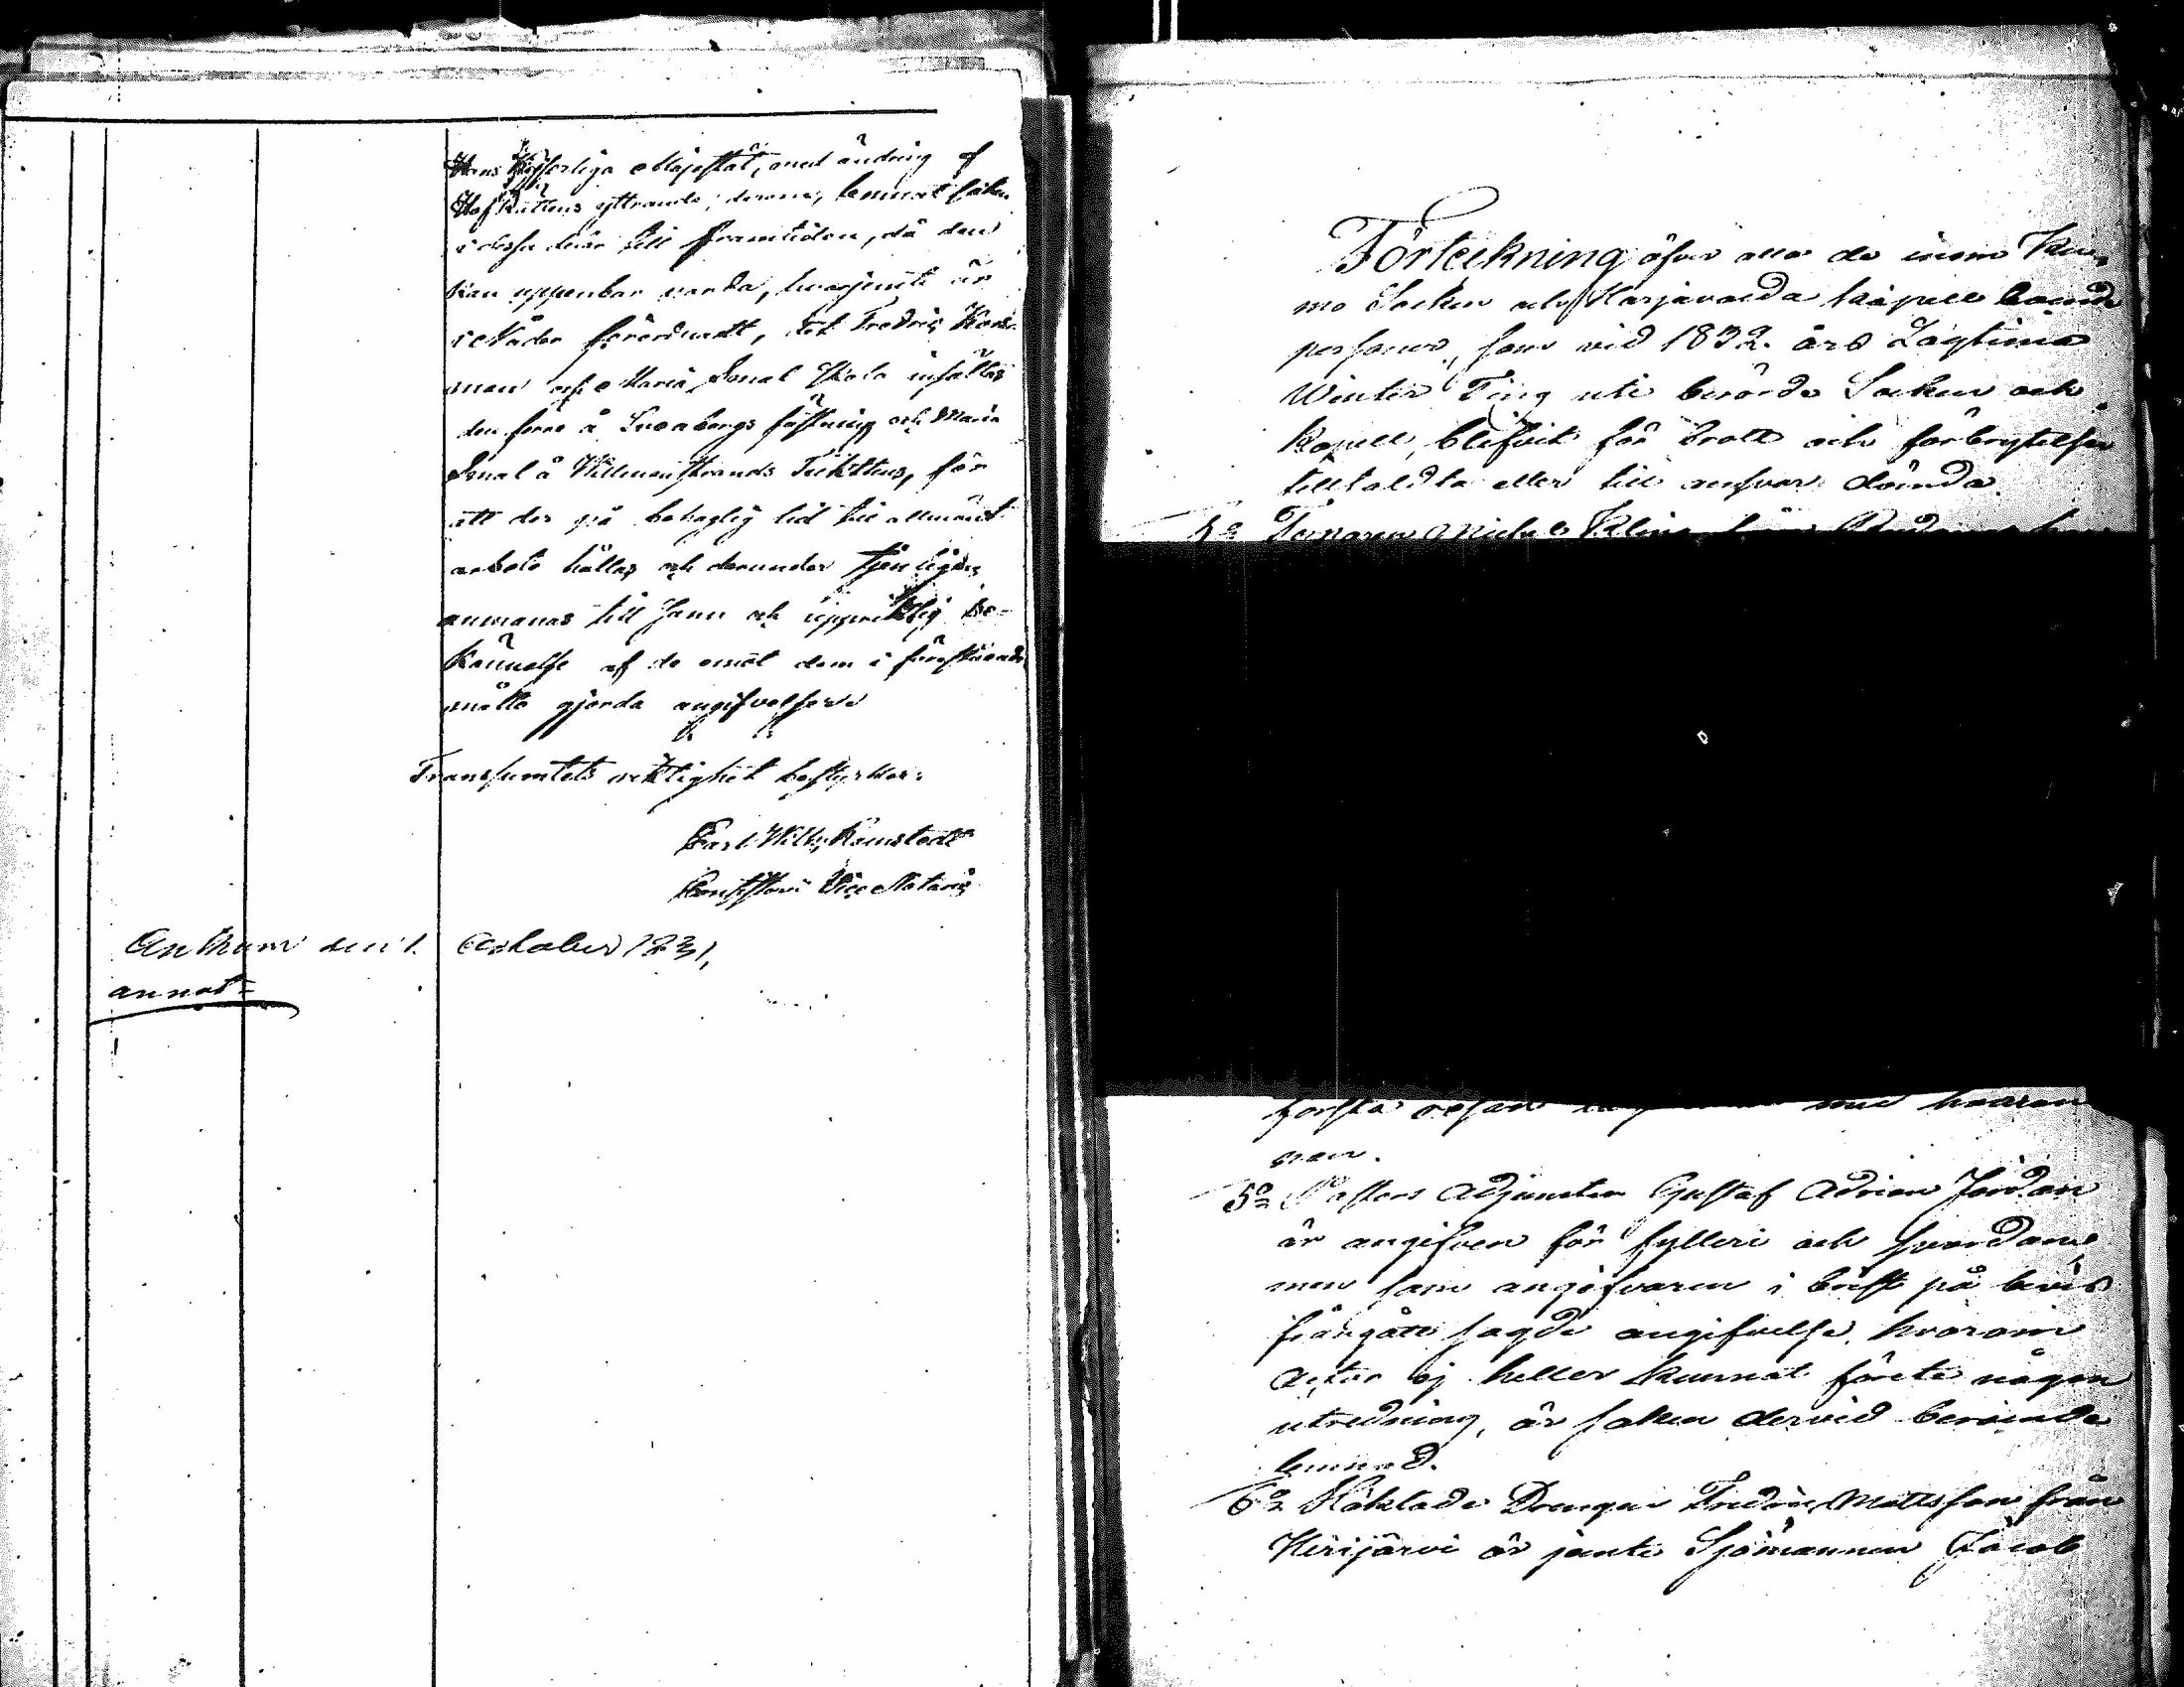 Hans Kejserliga Majestät, med ändring af
HofRättens yttrande, derom, lemnat saken
i dessa delar till framtiden, då den
kan uppenbar varda, hvarjemte är
i Nåder förordnadt, det Fredric
man och Maria Jonal Skola insättas
den förre å Sveaborgs fästning och Maria
Jonal å Willmanstrands Tukthus, för
att der på behaglig tid till allmänt
arbete hållas och derunder tjenligen
anmanas till sann och uppriktig be-
kännelse af de emot dem i föreskrefne
måtto gjorda angifvelser
Transsumtets riktighet bestyrker:
Carl Wilh. Ramstedt
Consistorii Vice Notarie
Ankom den 1. October 1831,
annot=
Förteckning öfver alla de inom Kiu,
mo Socken och Harjavalda kapell boende
personer, som vid 1832. års Lagtima
Winter Ting uti berörde Socken och
Kapell, blifvit för brott och förbrytelser
tilltaldta eller till ansvar dömda.
1o
första resan med hvaran
nan.
5o Pastors Adjuncten Gustaf Adrian Jordan
är angifven för fylleri och svordom,
men som angifvaren i brist på bevis
frångått sagde angifvelse, hvarom
Actor ej heller kunnat förete någon
utredning, är saken dervid beroende
lemnad.
6o Häktade Drengen Fredric Mattsson från
Hirijärvi är jemte Sjömannen Jacob